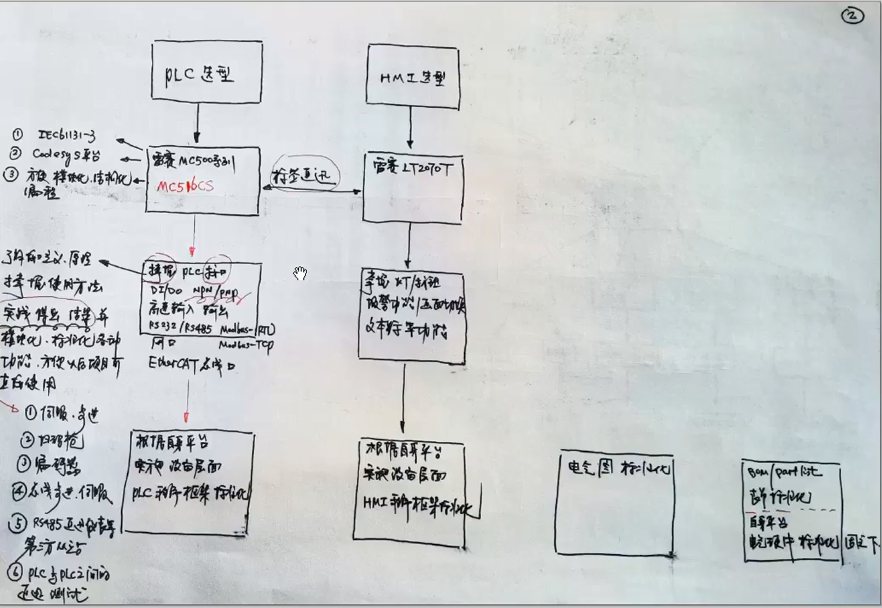 ②
PLC 选型
HMI 选型
① IEC61131-3
② Codesys平台
③ 方便 模块化.结构化
编程
雷赛 MC500系列
MC516CS
标签通讯
雷赛 LT2070T
了解 定义.原理
掌握使用方法
实践 得出 结果 并
模块化、标准化各功能
功能.方便以后项目可
直接使用
掌握 PLC 接口
DI/DO NPN/PNP
高速输入 输出
RS232/RS485 Modbus-RTU
网口 Modbus-TCP
EtherCAT 总线口
掌握
报警功能/画面切换
文本 等功能
① 伺服.步进
② 扫码枪
③ 编码器
④ 总线步进.伺服
⑤ RS485通讯仪表等
第三方从站
⑥ PLC与PLC之间的
通讯 测试
根据自身平台
实现 设备层面
PLC 程序框架标准化
根据自身平台
实现 设备层面
HMI 程序框架标准化
电气图 标准化
BOM/part list
标准化
自身平台
电气硬件 标准化 固定下